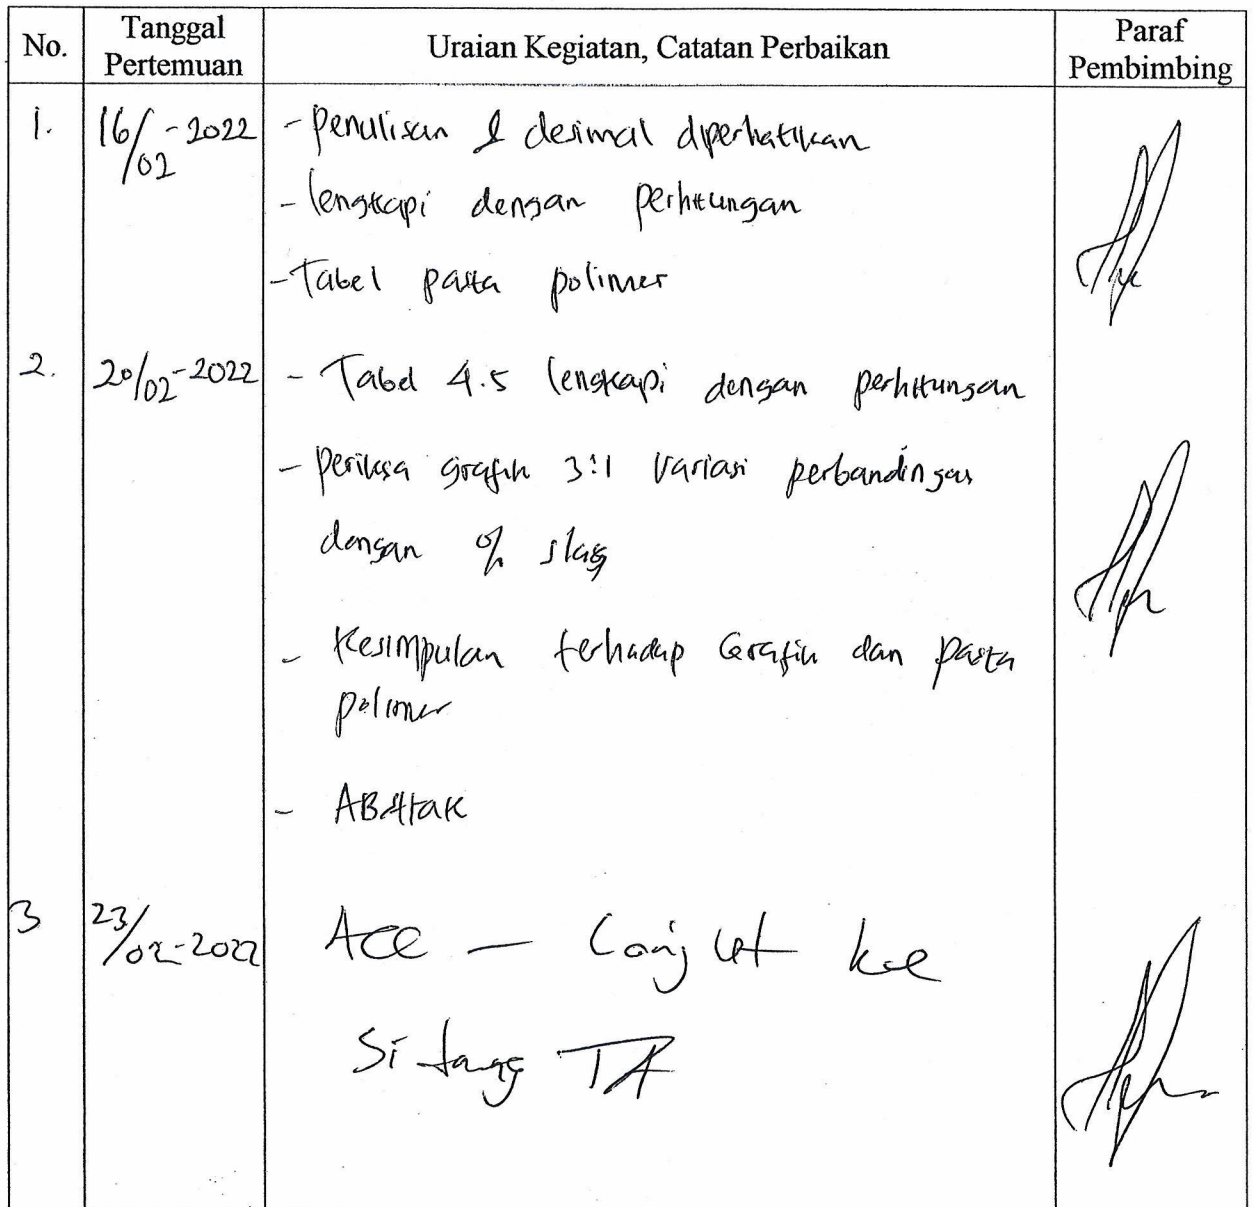 No.
Tanggal
Pertemuan
Uraian Kegiatan, Catatan Perbaikan
Paraf
Pembimbing
1.
16/02-2022
- Penulisan & desimal diperhatikan
- lengkapi dengan perhitungan
- Tabel pasta polimer
2.
20/02-2022
- Tabel 4.5 lengkapi dengan perhitungan
- periksa grafik 3:1 Variasi perbandingan
dengan % slag
- Kesimpulan terhadap Grafik dan pasta
polimer
- ABstrak
3
23/02-2022
Acc — Lanjut ke
Sidang TA